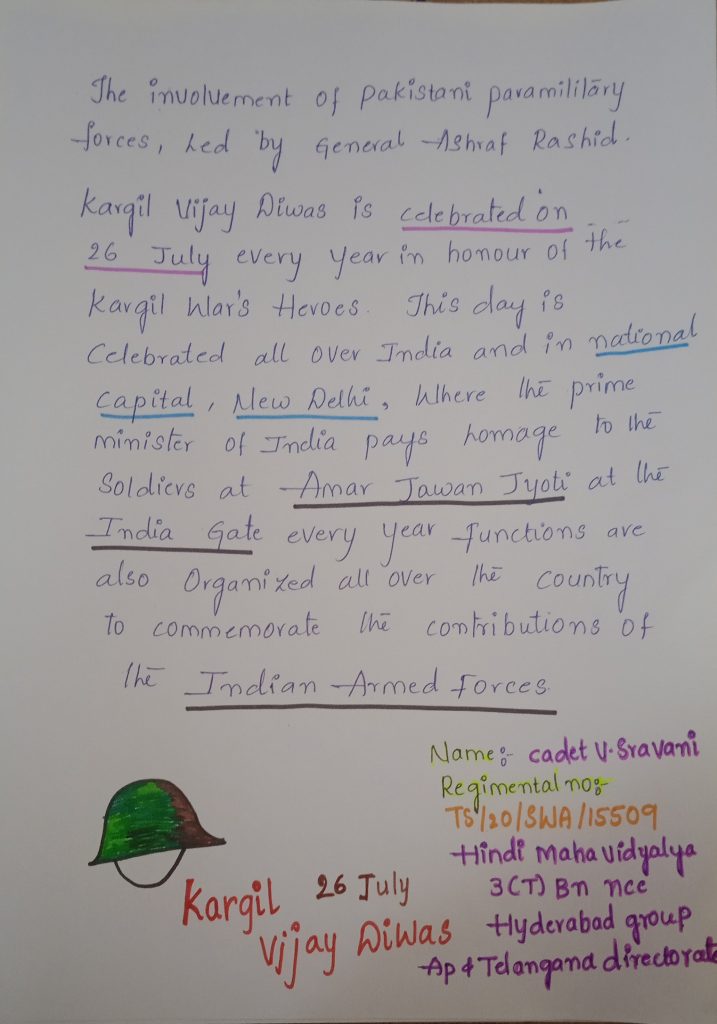 The involvement of Pakistani paramilitary
forces, Led by General Ashraf Rashid.
Kargil Vijay Diwas is celebrated on
26 July every year in honour of the
Kargil War's Heroes. This day is
Celebrated all over India and in national
Capital, New Delhi, Where the prime
minister of India pays homage to the
Soldiers at Amar Jawan Jyoti at the
India Gate every year functions are
also Organized all over the country
to commemorate the contributions of
the Indian Armed Forces.
Name:- cadet V.Sravani
Regimental no:-
TS/20/SWA/15509
Hindi Maha Vidyalya
3(T) Bn ncc
Hyderabad group
Ap & Telangana directorate
Kargil 26 July
Vijay Diwas